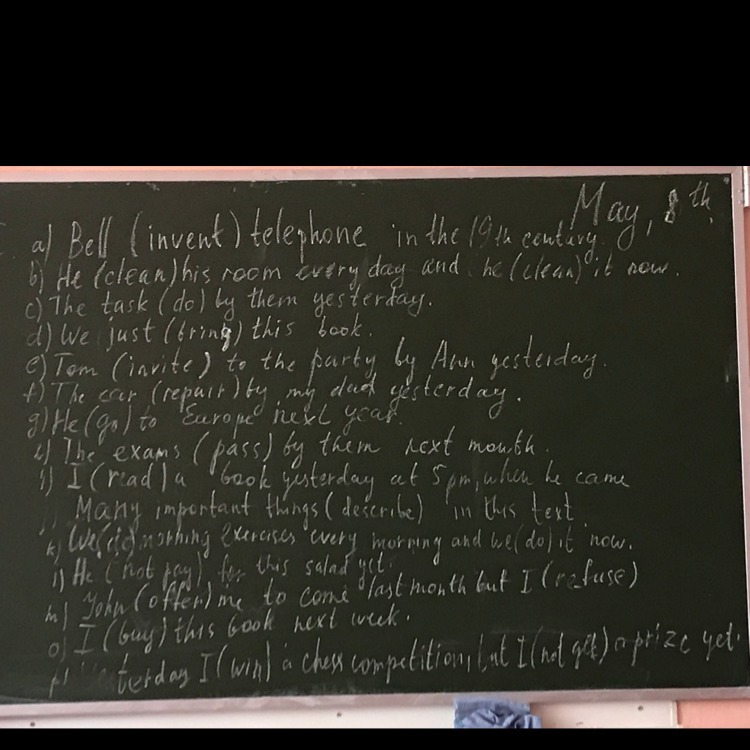 May, 8th.
a) Bell (invent) telephone in the 19th century.
b) He (clean) his room every day and he (clean) it now.
c) The task (do) by them yesterday.
d) We just (bring) this book.
e) Tom (invite) to the party by Ann yesterday.
f) The car (repair) by my dad yesterday.
g) He (go) to Europe next year.
The exams (pass) by them next month.
i) I (read) a book yesterday at 5 pm, when he came
Many important things (describe) in this text.
k) We (do) morning exercises every morning and we (do) it now.
l) He (not pay) for this salad yet.
m) John (offer) me to come last month but I (refuse)
o) I (buy) this book next week.
terday I (win) a chess competition, but I (not get) a prize yet.